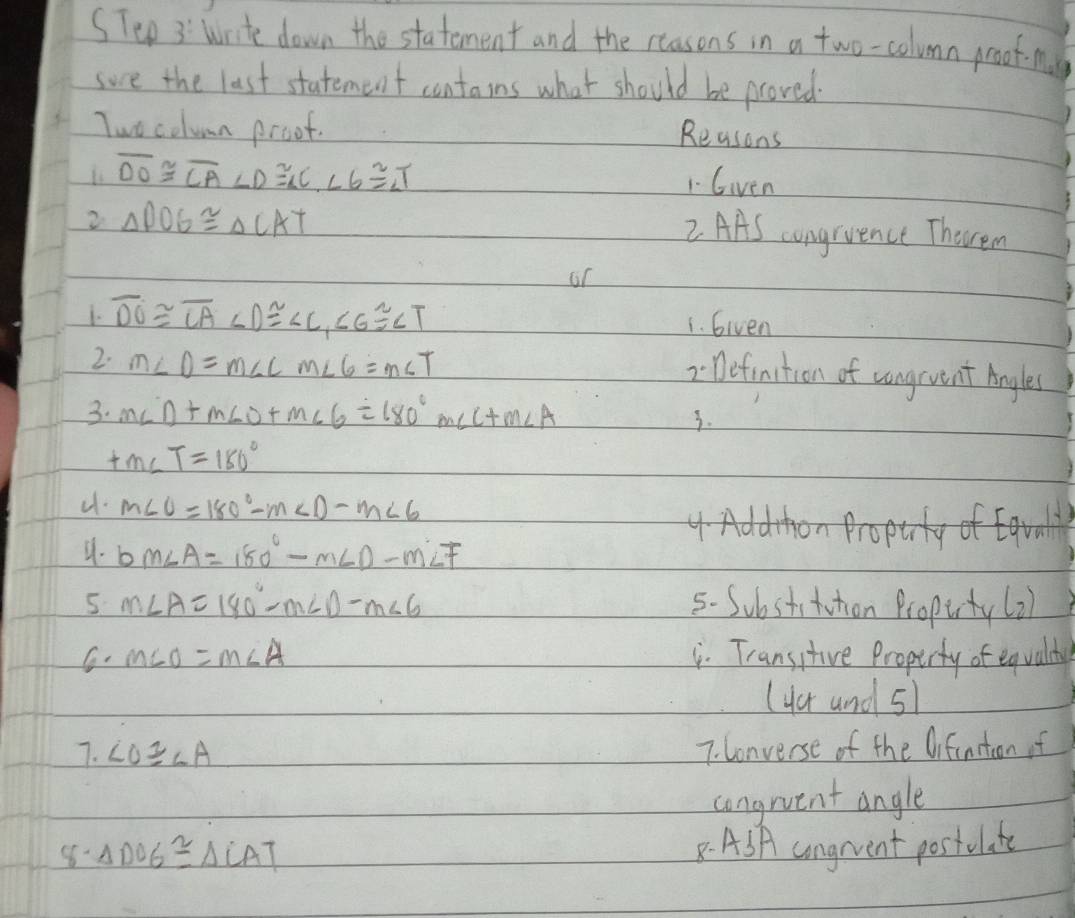 STep 3: Write down the statement and the reasons in a two-column proof. Make
sure the last statement contains what should be proved.
Two column proof. Reasons
1. DO ≅ CA ∠D≅∠C, ∠G≅∠T 1. Given
2. △DOG ≅ △CAT 2. AAS congruence Theorem
or
1. DO ≅ CA ∠D≅∠C, ∠G≅∠T 1. Given
2. m∠D = m∠C m∠G = m∠T 2. Definition of congruent Angles
3. m∠D + m∠O + m∠G = 180° m∠C + m∠A 3.
+ m∠T = 180°
4. m∠O = 180° - m∠D - m∠G 4. Addition Property of Equality
4. b m∠A = 180° - m∠D - m∠T
5. m∠A = 180° - m∠D - m∠G 5- Substitution Property (2)
6. m∠O = m∠A 6. Transitive Property of equality
(4a and 5)
7. ∠O ≅ ∠A 7. Converse of the Difinition of
congruent angle
8. △DOG ≅ △CAT 8- ASA congruent postulate